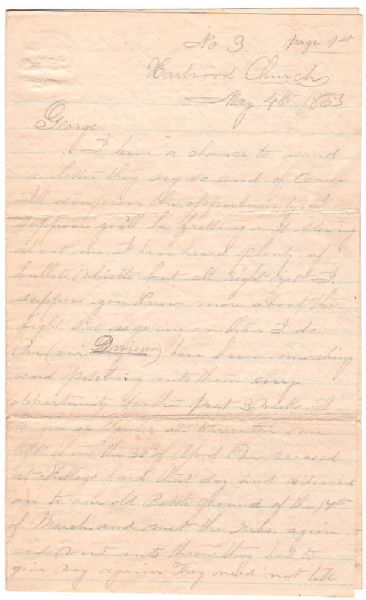 No 3 Page 1st
Hartwood Church
May 4th 1863
George
I have a chance to send
a letter they say so and of course
I'll improve the opportunity I
suppose you'll be fretting and
about me I have heard plenty of
bullets whistle but all right yet I
suppose you know more about the
fight that is going on than I do
We (our Division) have been marching
and into them every
opportunity for the past 3 weeks I
at Warrenton
the 30 of April We crossed
at Kellys ford that day and advanced
on to our old Battle ground of the 17th
of March and met the rebs again
and went into them they had to
give way again They need not tell